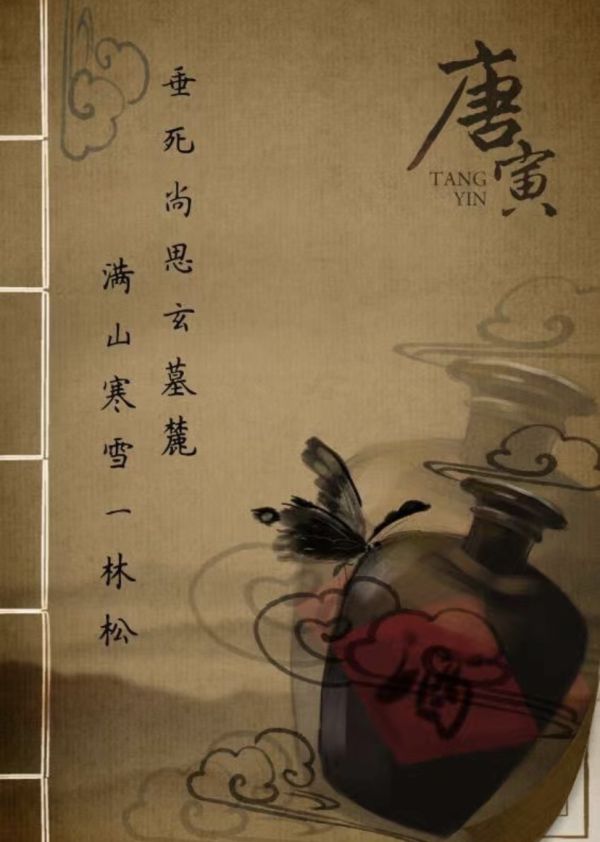 唐寅
TANG
YIN
垂死尚思玄墓麓
满山寒雪一林松
酒